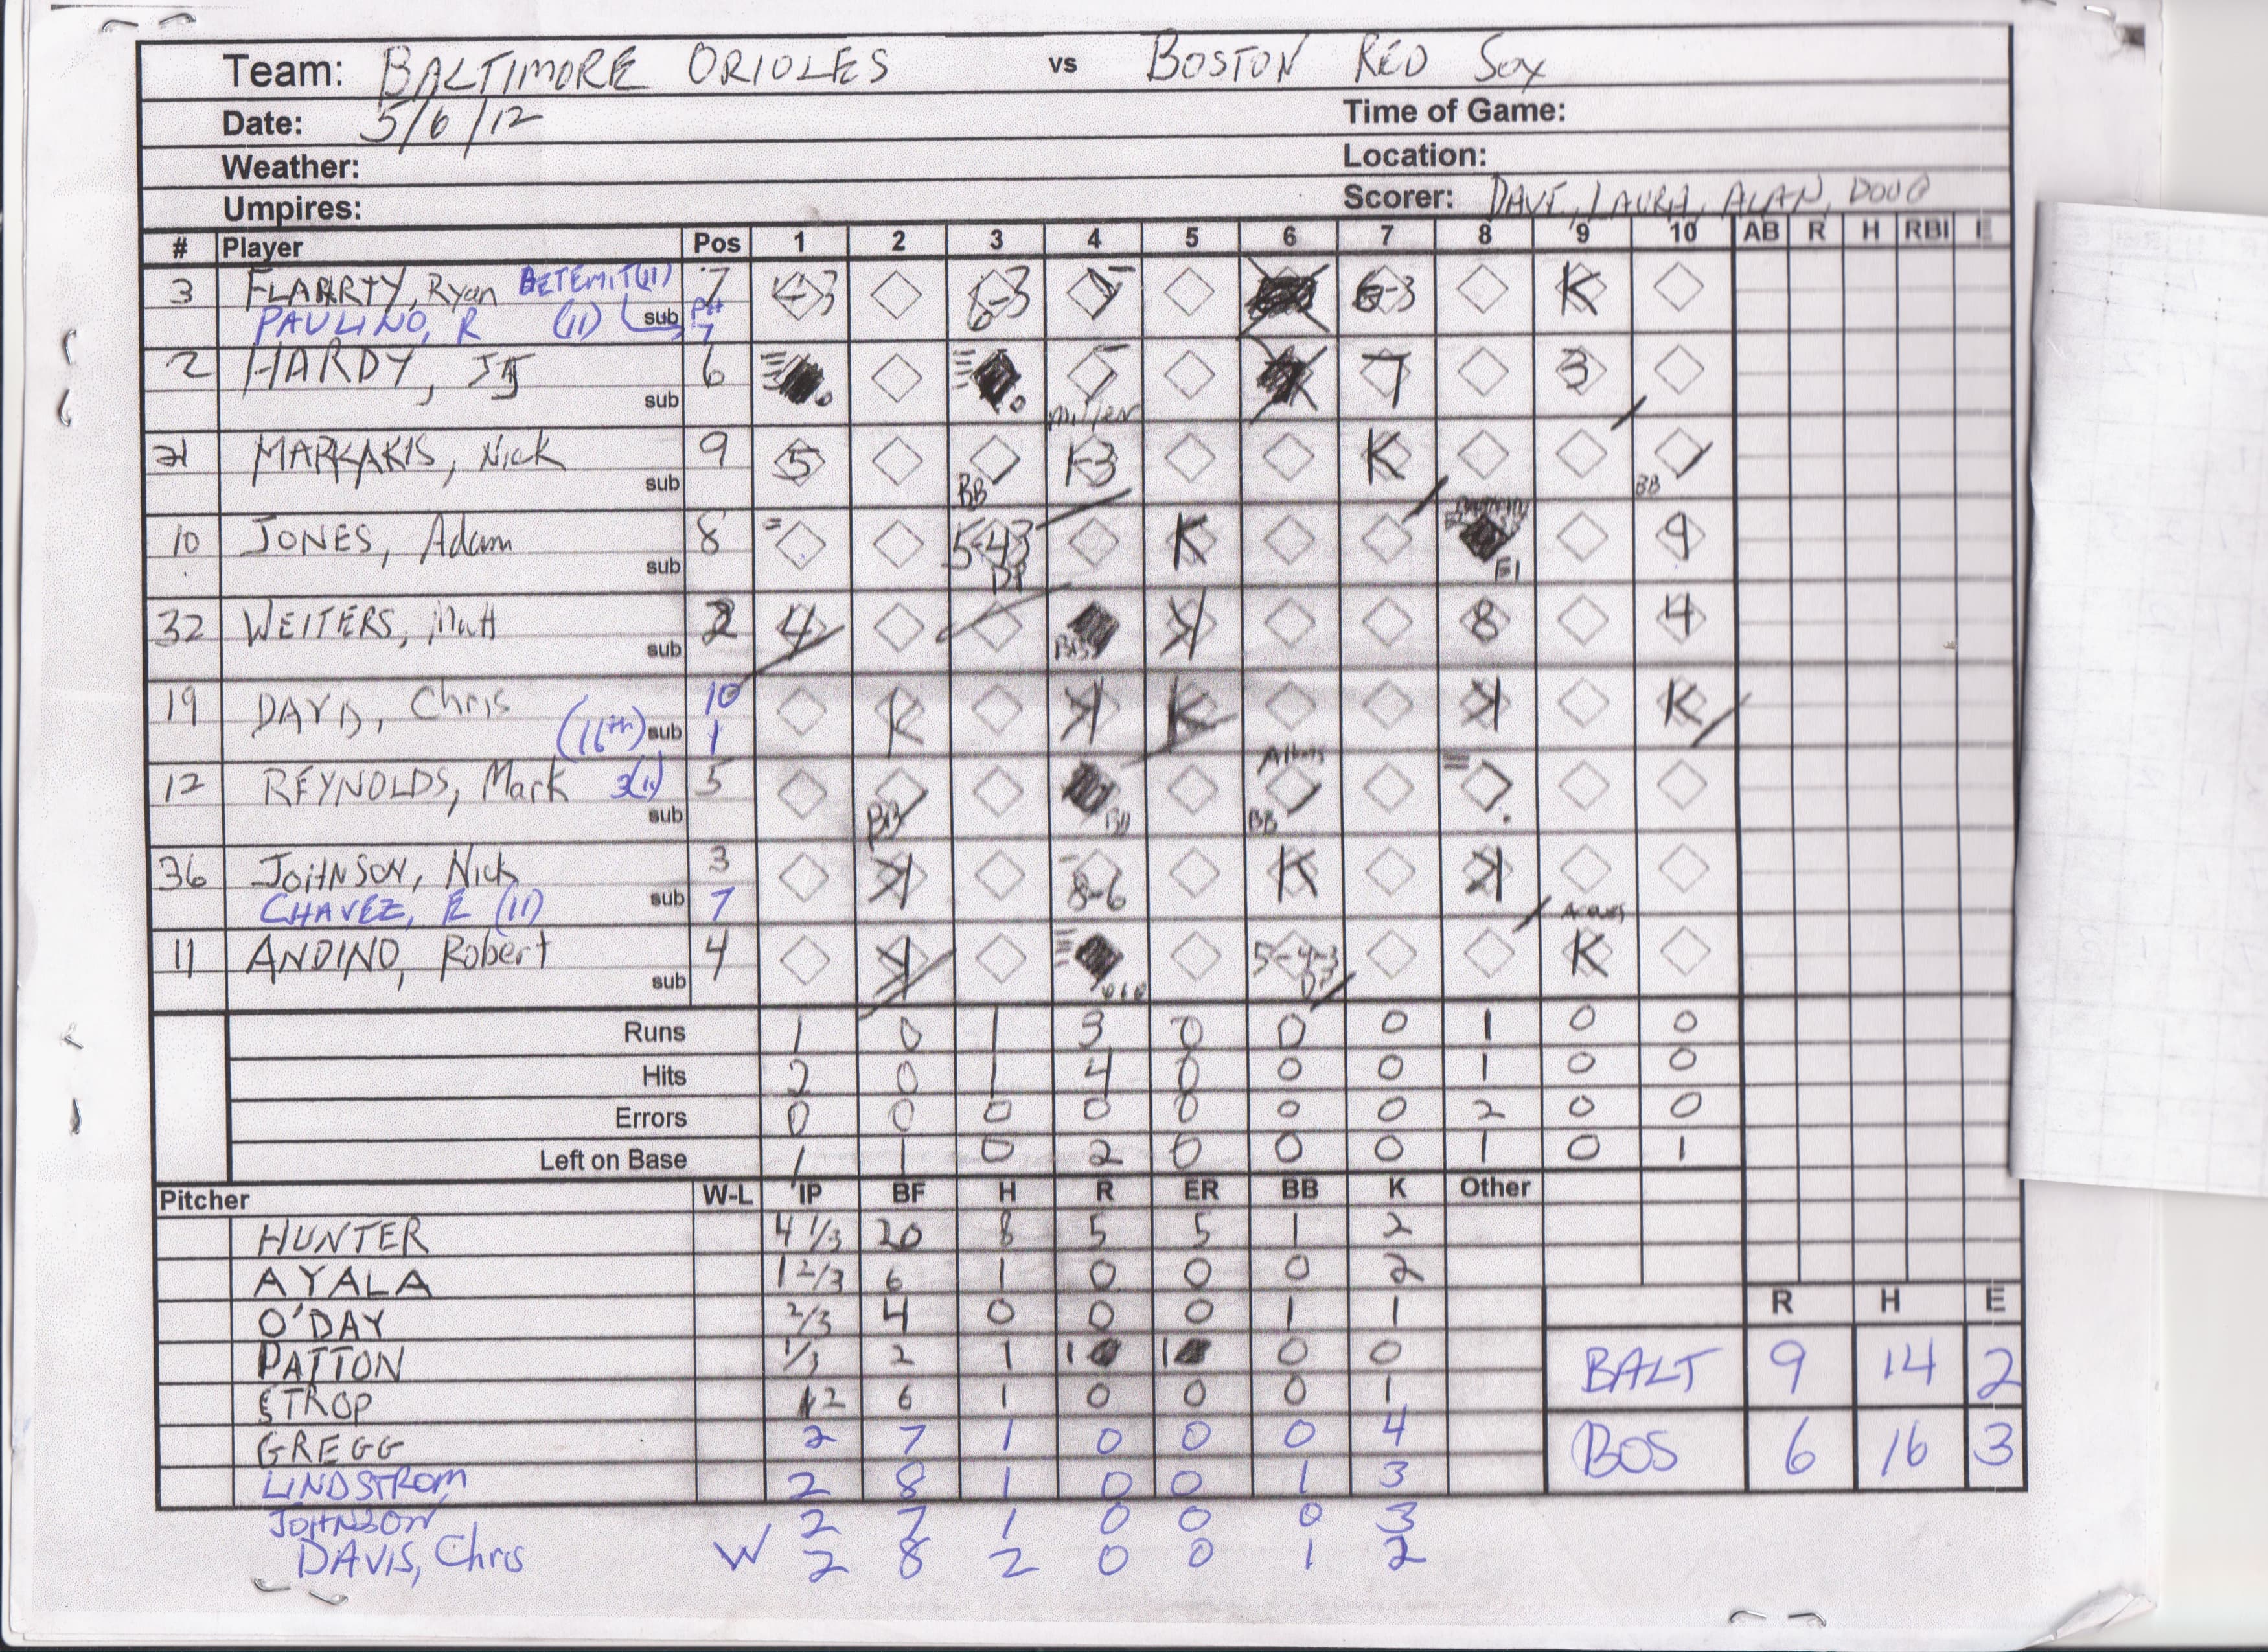 Team: BALTIMORE ORIOLES vs BOSTON RED SOX
Date: 5/6/12 Time of Game:
Weather: Location:
Umpires: Scorer: DAVE, LAURA, ALAN, DOUG
# Player Pos 1 2 3 4 5 6 7 8 9 10 AB R H RBI E
3 FLAHRTY, Ryan BETEMIT (11) 7 4-3 6-3 6-3 K
PAULINO, R (11) sub PH 7
2 HARDY, JJ 6 7 3
sub Miller
21 MARKAKIS, Nick 9 5 BB 1-3 K BB
sub
10 JONES, Adam 8 5-4-3 DP K E1 9
sub
32 WEITERS, Matt 2 4 BB K 8 4
sub
19 DAVIS, Chris 10 K K K K K
(16th) sub 1
12 REYNOLDS, Mark 3(11) 5 BB BB Albers BB
sub
36 JOHNSON, Nick 3 K 8-6 K K
CHAVEZ, E (11) sub 7 Aceves
11 ANDINO, Robert 4 K 5-4-3 DP K
sub
Runs 1 0 1 3 0 0 0 1 0 0
Hits 2 0 1 4 0 0 0 1 0 0
Errors 0 0 0 0 0 0 0 2 0 0
Left on Base 1 1 0 2 0 0 0 1 0 1
Pitcher W-L IP BF H R ER BB K Other
HUNTER 4 1/3 20 8 5 5 1 2
AYALA 1 2/3 6 1 0 0 0 2
R H E
O'DAY 2/3 4 0 0 0 1 1
PATTON 1/3 2 1 1 1 0 0
BALT 9 14 2
STROP 2 6 1 0 0 0 1
GREGG 2 7 1 0 0 0 4
BOS 6 16 3
LINDSTROM 2 8 1 0 0 1 3
JOHNSON 2 7 1 0 0 0 3
DAVIS, Chris W 2 8 2 0 0 1 2